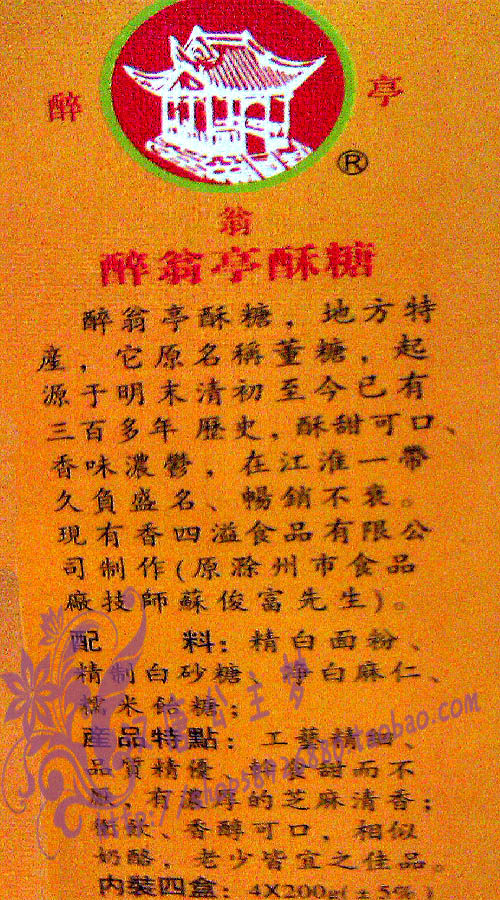 醉 亭
®
翁
醉翁亭酥糖
醉翁亭酥糖，地方特
産，它原名稱董糖，起
源于明末清初至今已有
三百多年歷史，酥甜可口、
香味濃鬱，在江淮一帶
久負盛名、暢銷不衰。
現有香四溢食品有限公
司制作(原滁州市食品
廠技師蘇俊富先生)。
配 料：精白面粉、
精制白砂糖、淨白麻仁、
糯米飴糖；
産品特點：工藝精細、
品質精優 幹食甜而不
厭，有濃厚的芝麻清香；
衝飲、香醇可口，相似
奶酪，老少皆宜之佳品。
内裝四盒：4X200g(±5%)
taobao.com